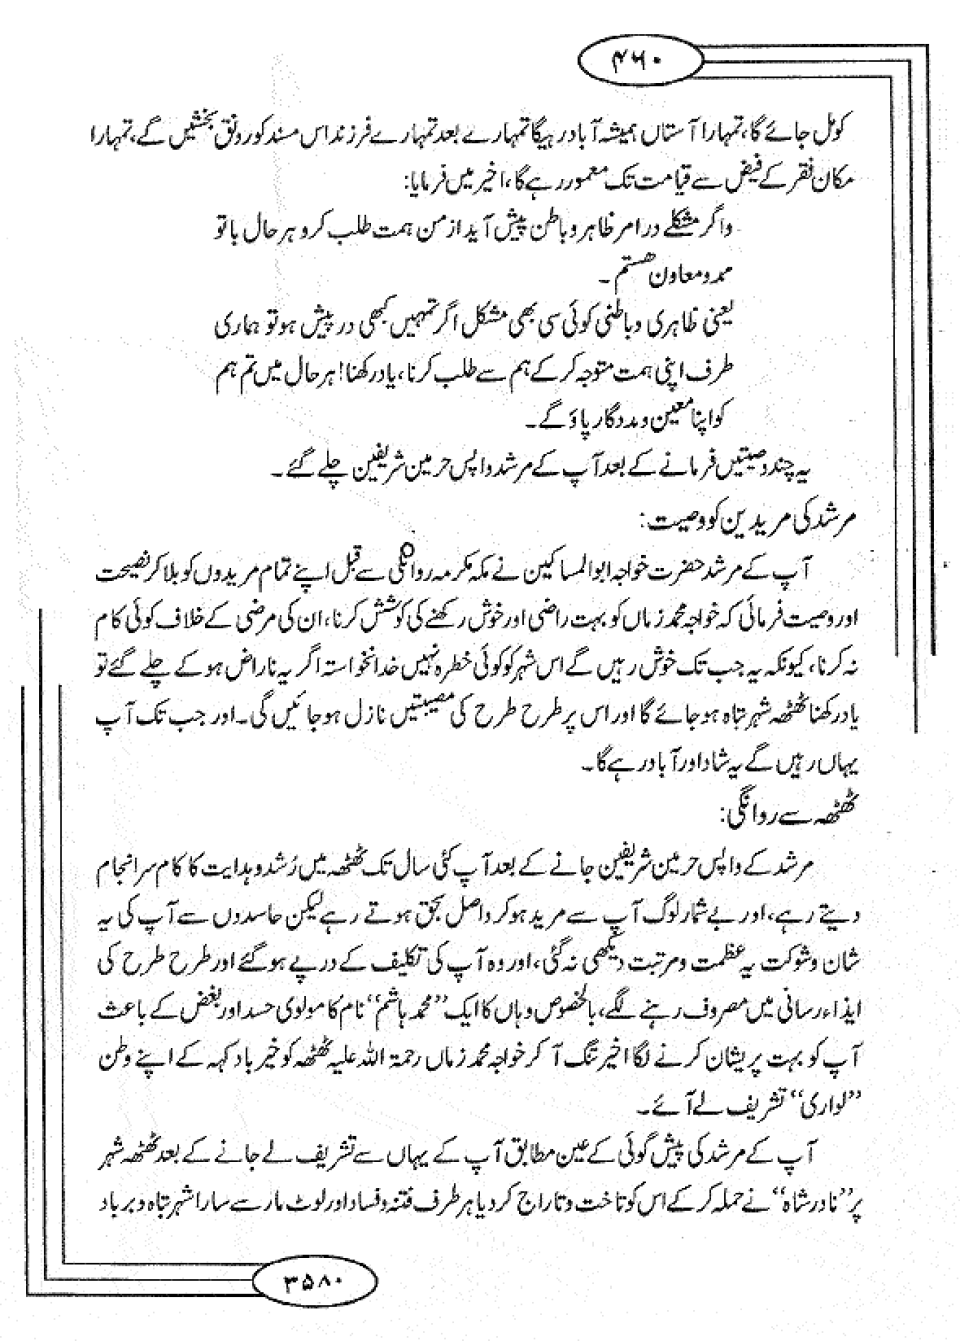 ۴۶۰
کومل جائے گا، تمہارا آستاں ہمیشہ آباد رہیگا تمہارے بعد تمہارے فرزند اس مسند کو رونق بخشیں گے، تمہارا
مکان فقر کے فیض سے قیامت تک معمور رہے گا، اخیر میں فرمایا:
واگر مشکلے در امر ظاہر و باطن پیش آید از من ہمت طلب کرو ہر حال با تو
ممد و معاون ھستم ۔
یعنی ظاہری و باطنی کوئی سی بھی مشکل اگر تمہیں کبھی درپیش ہو تو ہماری
طرف اپنی ہمت متوجہ کر کے ہم سے طلب کرنا، یاد رکھنا! ہر حال میں تم ہم
کو اپنا معین و مددگار پاؤ گے۔
یہ چند وصیتیں فرمانے کے بعد آپ کے مرشد واپس حرمین شریفین چلے گئے۔
مرشد کی مریدین کو وصیت:
آپ کے مرشد حضرت خواجہ ابوالمساکین نے مکہ مکرمہ روانگی سے قبل اپنے تمام مریدوں کو بلا کر نصیحت
اور وصیت فرمائی کہ خواجہ محمد زماں کو بہت راضی اور خوش رکھنے کی کوشش کرنا، ان کی مرضی کے خلاف کوئی کام
نہ کرنا، کیونکہ یہ جب تک خوش رہیں گے اس شہر کو کوئی خطرہ نہیں خدانخواستہ اگر یہ ناراض ہو کے چلے گئے تو
یاد رکھنا ٹھٹھہ شہر تباہ ہو جائے گا اور اس پر طرح طرح کی مصیبتیں نازل ہو جائیں گی۔ اور جب تک آپ
یہاں رہیں گے یہ شاد اور آباد رہے گا۔
ٹھٹھہ سے روانگی:
مرشد کے واپس حرمین شریفین جانے کے بعد آپ کئی سال تک ٹھٹھہ میں رُشد و ہدایت کا کام سرانجام
دیتے رہے، اور بے شمار لوگ آپ سے مرید ہو کر واصل بحق ہوتے رہے لیکن حاسدوں سے آپ کی یہ
شان و شوکت یہ عظمت و مرتبت دیکھی نہ گئی، اور وہ آپ کی تکلیف کے درپے ہو گئے اور طرح طرح کی
ایذاء رسانی میں مصروف رہنے لگے، بالخصوص وہاں کا ایک ”محمد ہاشم“ نام کا مولوی حسد اور بغض کے باعث
آپ کو بہت پریشان کرنے لگا اخیر تنگ آ کر خواجہ محمد زماں رحمۃ اللہ علیہ ٹھٹھہ کو خیر باد کہہ کے اپنے وطن
”لواری“ تشریف لے آئے۔
آپ کے مرشد کی پیش گوئی کے عین مطابق آپ کے یہاں سے تشریف لے جانے کے بعد ٹھٹھہ شہر
پر ”نادر شاہ“ نے حملہ کر کے اس کو تاخت و تاراج کر دیا ہر طرف فتنہ و فساد اور لوٹ مار سے سارا شہر تباہ و برباد
۳۵۸۰